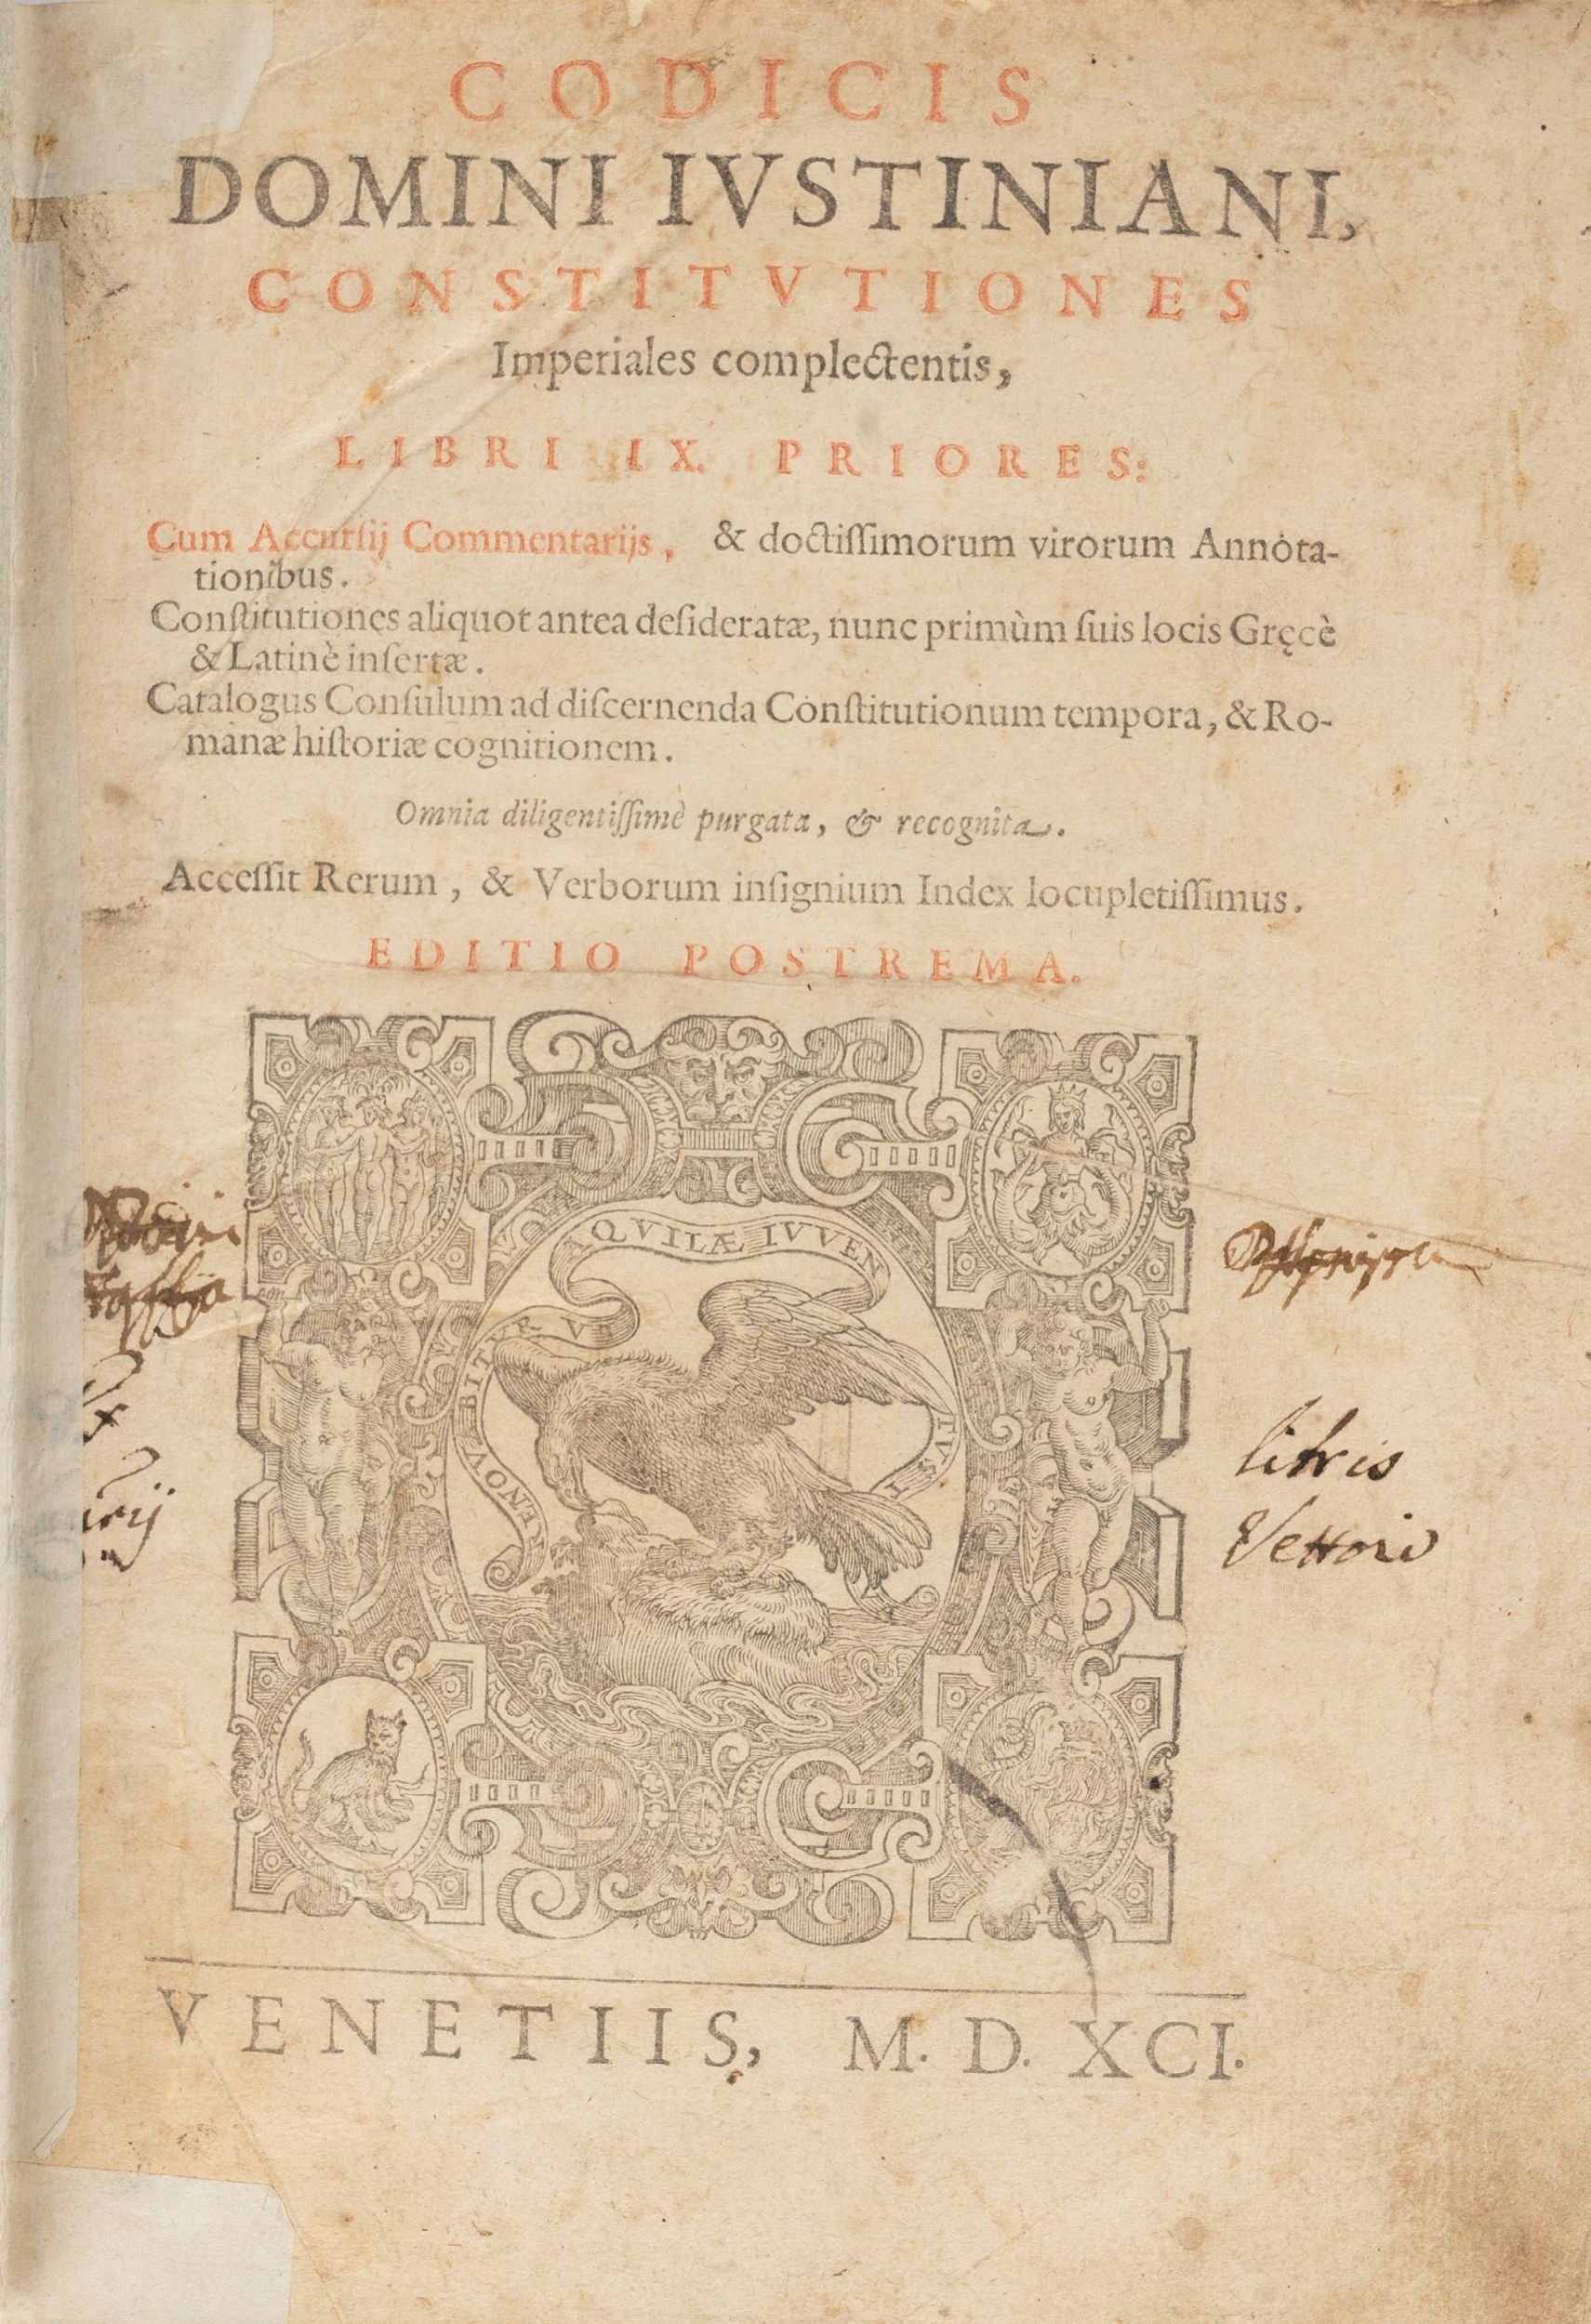 CODICIS
DOMINI IVSTINIANI,
CONSTITVTIONES
Imperiales complectentis,
LIBRI IX. PRIORES:
Cum Accursij Commentarijs, & doctissimorum virorum Annota-
tionibus.
Constitutiones aliquot antea desideratæ, nunc primùm suis locis Gręcè
& Latinè insertæ.
Catalogus Consulum ad discernenda Constitutionum tempora, & Ro-
manæ historiæ cognitionem.
Omnia diligentissimè purgata, & recognita.
Accessit Rerum, & Verborum insignium Index locupletissimus.
EDITIO POSTREMA.
RENOVABITVR VT AQVILÆ IVVENTVS
libris
Vettorio
VENETIIS, M. D. XCI.